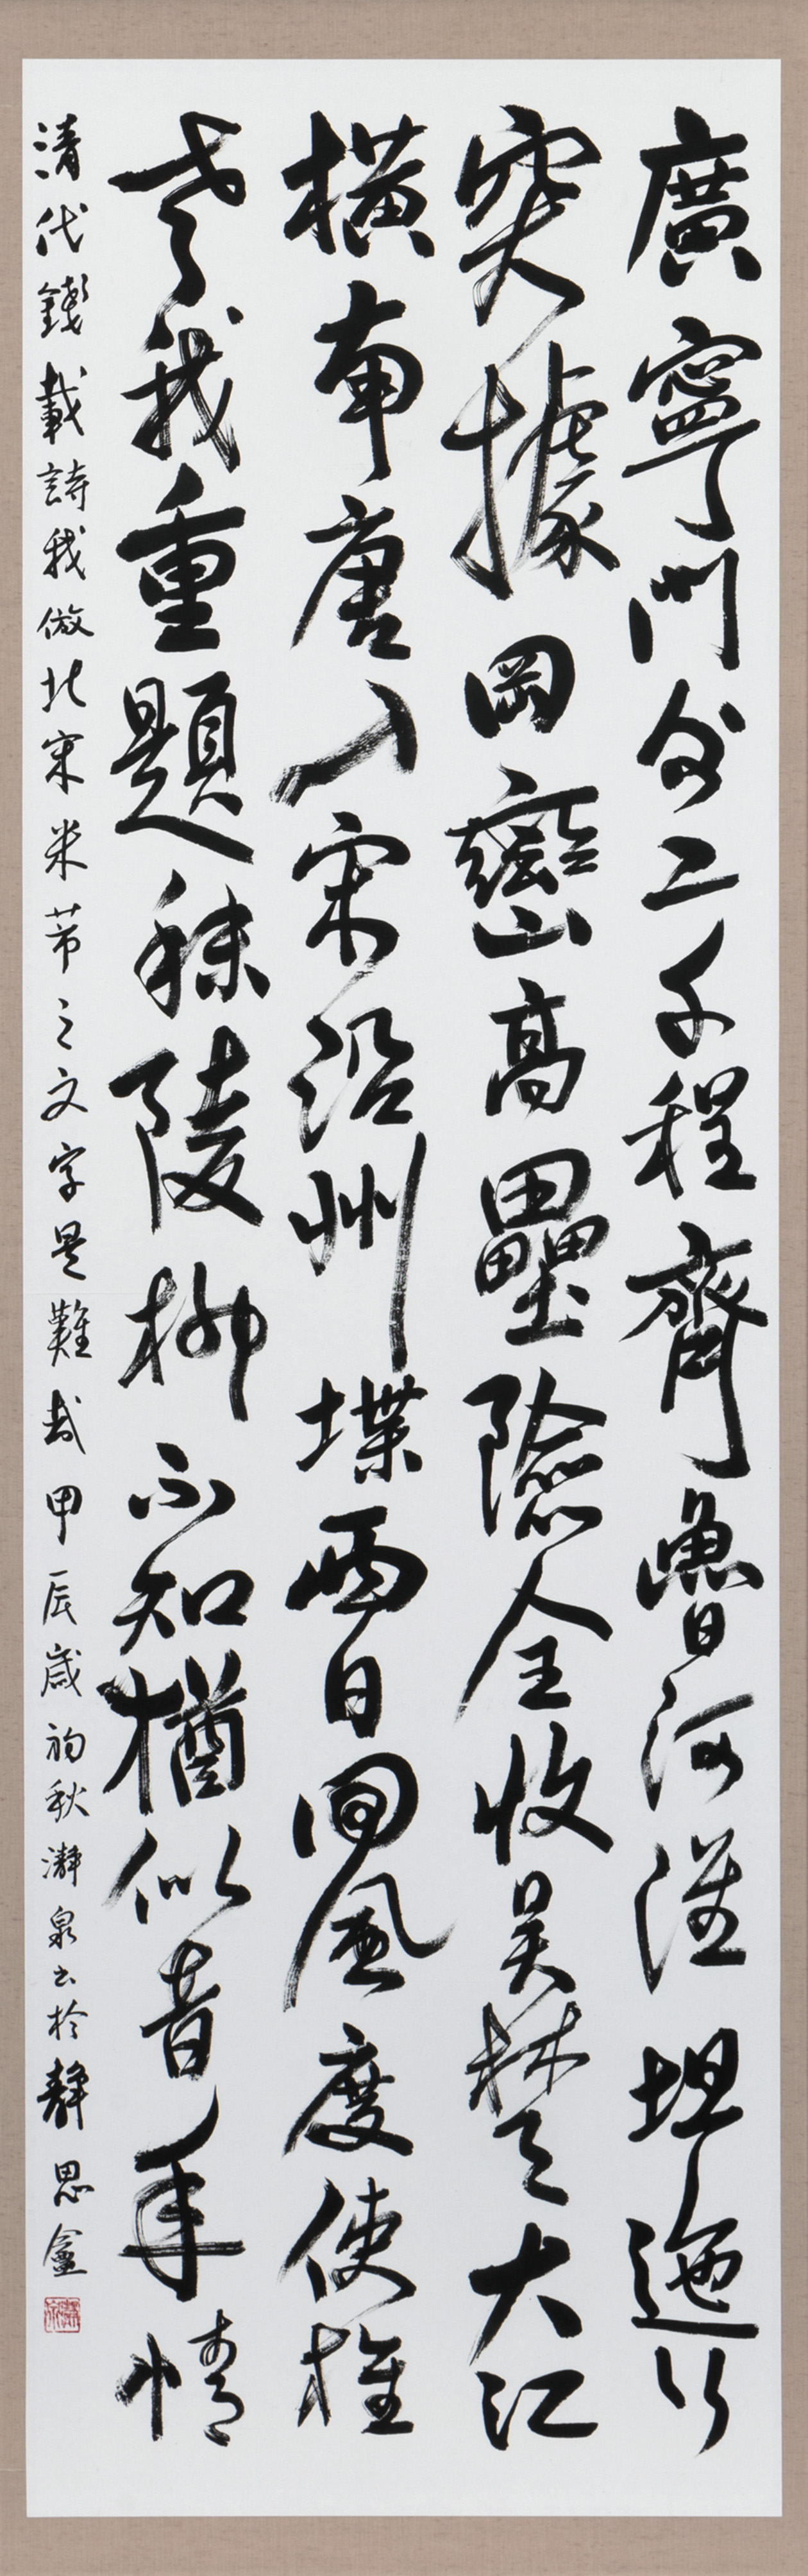 廣寧門外二千程齊魯河淮坦迤行
突據岡巒高壘險全收吳楚大江
橫南唐入宋沿州堞兩日回風度使旌
老我重題秣陵柳不知猶似昔年情
清代錢載詩我倣北宋米芾之文字是難哉甲辰歳初秋瀞泉書於靜思盦